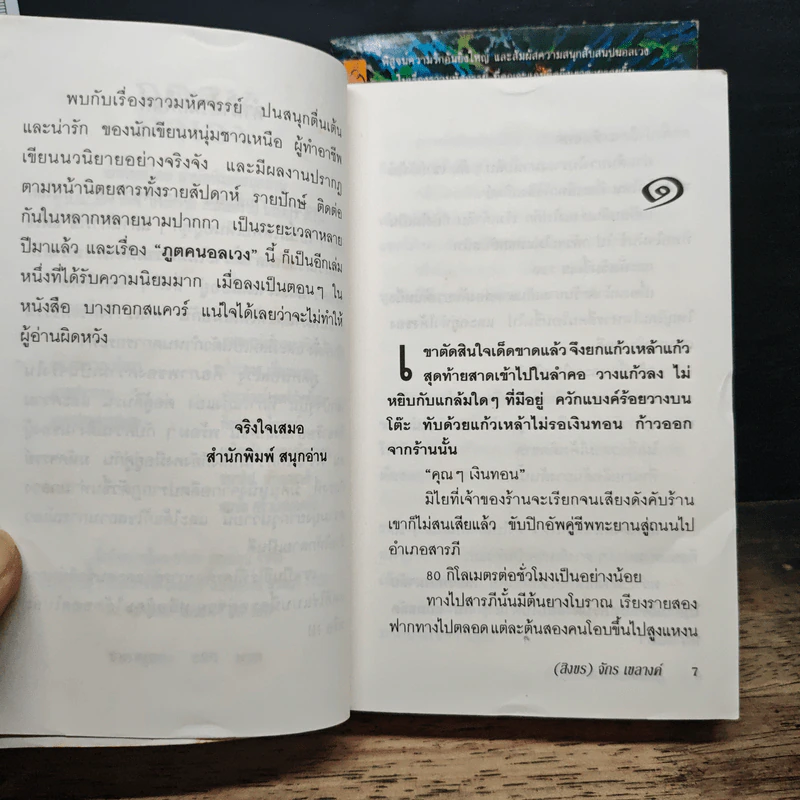 พิสูจน์ความรักอันยิ่งใหญ่ และสัมผัสความสนุกสับสนปนอลเวง
พบกับเรื่องราวมหัศจรรย์ ปนสนุกตื่นเต้น
และน่ารัก ของนักเขียนหนุ่มชาวเหนือ ผู้ทำอาชีพ
เขียนนวนิยายอย่างจริงจัง และมีผลงานปรากฏ
ตามหน้านิตยสารทั้งรายสัปดาห์ รายปักษ์ ติดต่อ
กันในหลากหลายนามปากกา เป็นระยะเวลาหลาย
ปีมาแล้ว และเรื่อง “ภูตคนอลเวง” นี้ ก็เป็นอีกเล่ม
หนึ่งที่ได้รับความนิยมมาก เมื่อลงเป็นตอนๆ ใน
หนังสือ บางกอกสแควร์ แน่ใจได้เลยว่าจะไม่ทำให้
ผู้อ่านผิดหวัง
จริงใจเสมอ
สำนักพิมพ์ สนุกอ่าน
๑
เขาตัดสินใจเด็ดขาดแล้ว จึงยกแก้วเหล้าแก้ว
สุดท้ายสาดเข้าไปในลำคอ วางแก้วลง ไม่
หยิบกับแกล้มใดๆ ที่มีอยู่ ควักแบงค์ร้อยวางบน
โต๊ะ ทับด้วยแก้วเหล้าไม่รอเงินทอน ก้าวออก
จากร้านนั้น
“คุณๆ เงินทอน”
มิไยที่เจ้าของร้านจะเรียกจนเสียงดังคับร้าน
เขาก็ไม่สนเสียแล้ว ขับปิกอัพคู่ชีพทะยานสู่ถนนไป
อำเภอสารภี
80 กิโลเมตรต่อชั่วโมงเป็นอย่างน้อย
ทางไปสารภีนั้นมีต้นยางโบราณ เรียงรายสอง
ฟากทางไปตลอด แต่ละต้นสองคนโอบขึ้นไปสูงแหงน
(สิงขร) จักร เขลางค์ 7